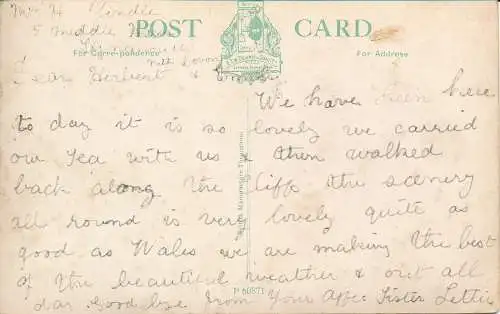 Mr H
POST CARD
5 Middle
For Correspondence
For Address
with Love
Dear Herbert &
We have been here
to day it is so lovely we carried
our tea with us & then walked
back along the cliffs the scenery
all round is very lovely quite as
good as Wales we are making the best
of the beautiful weather & out all
day Good bye from Your Affec Sister Lettie
P 60871